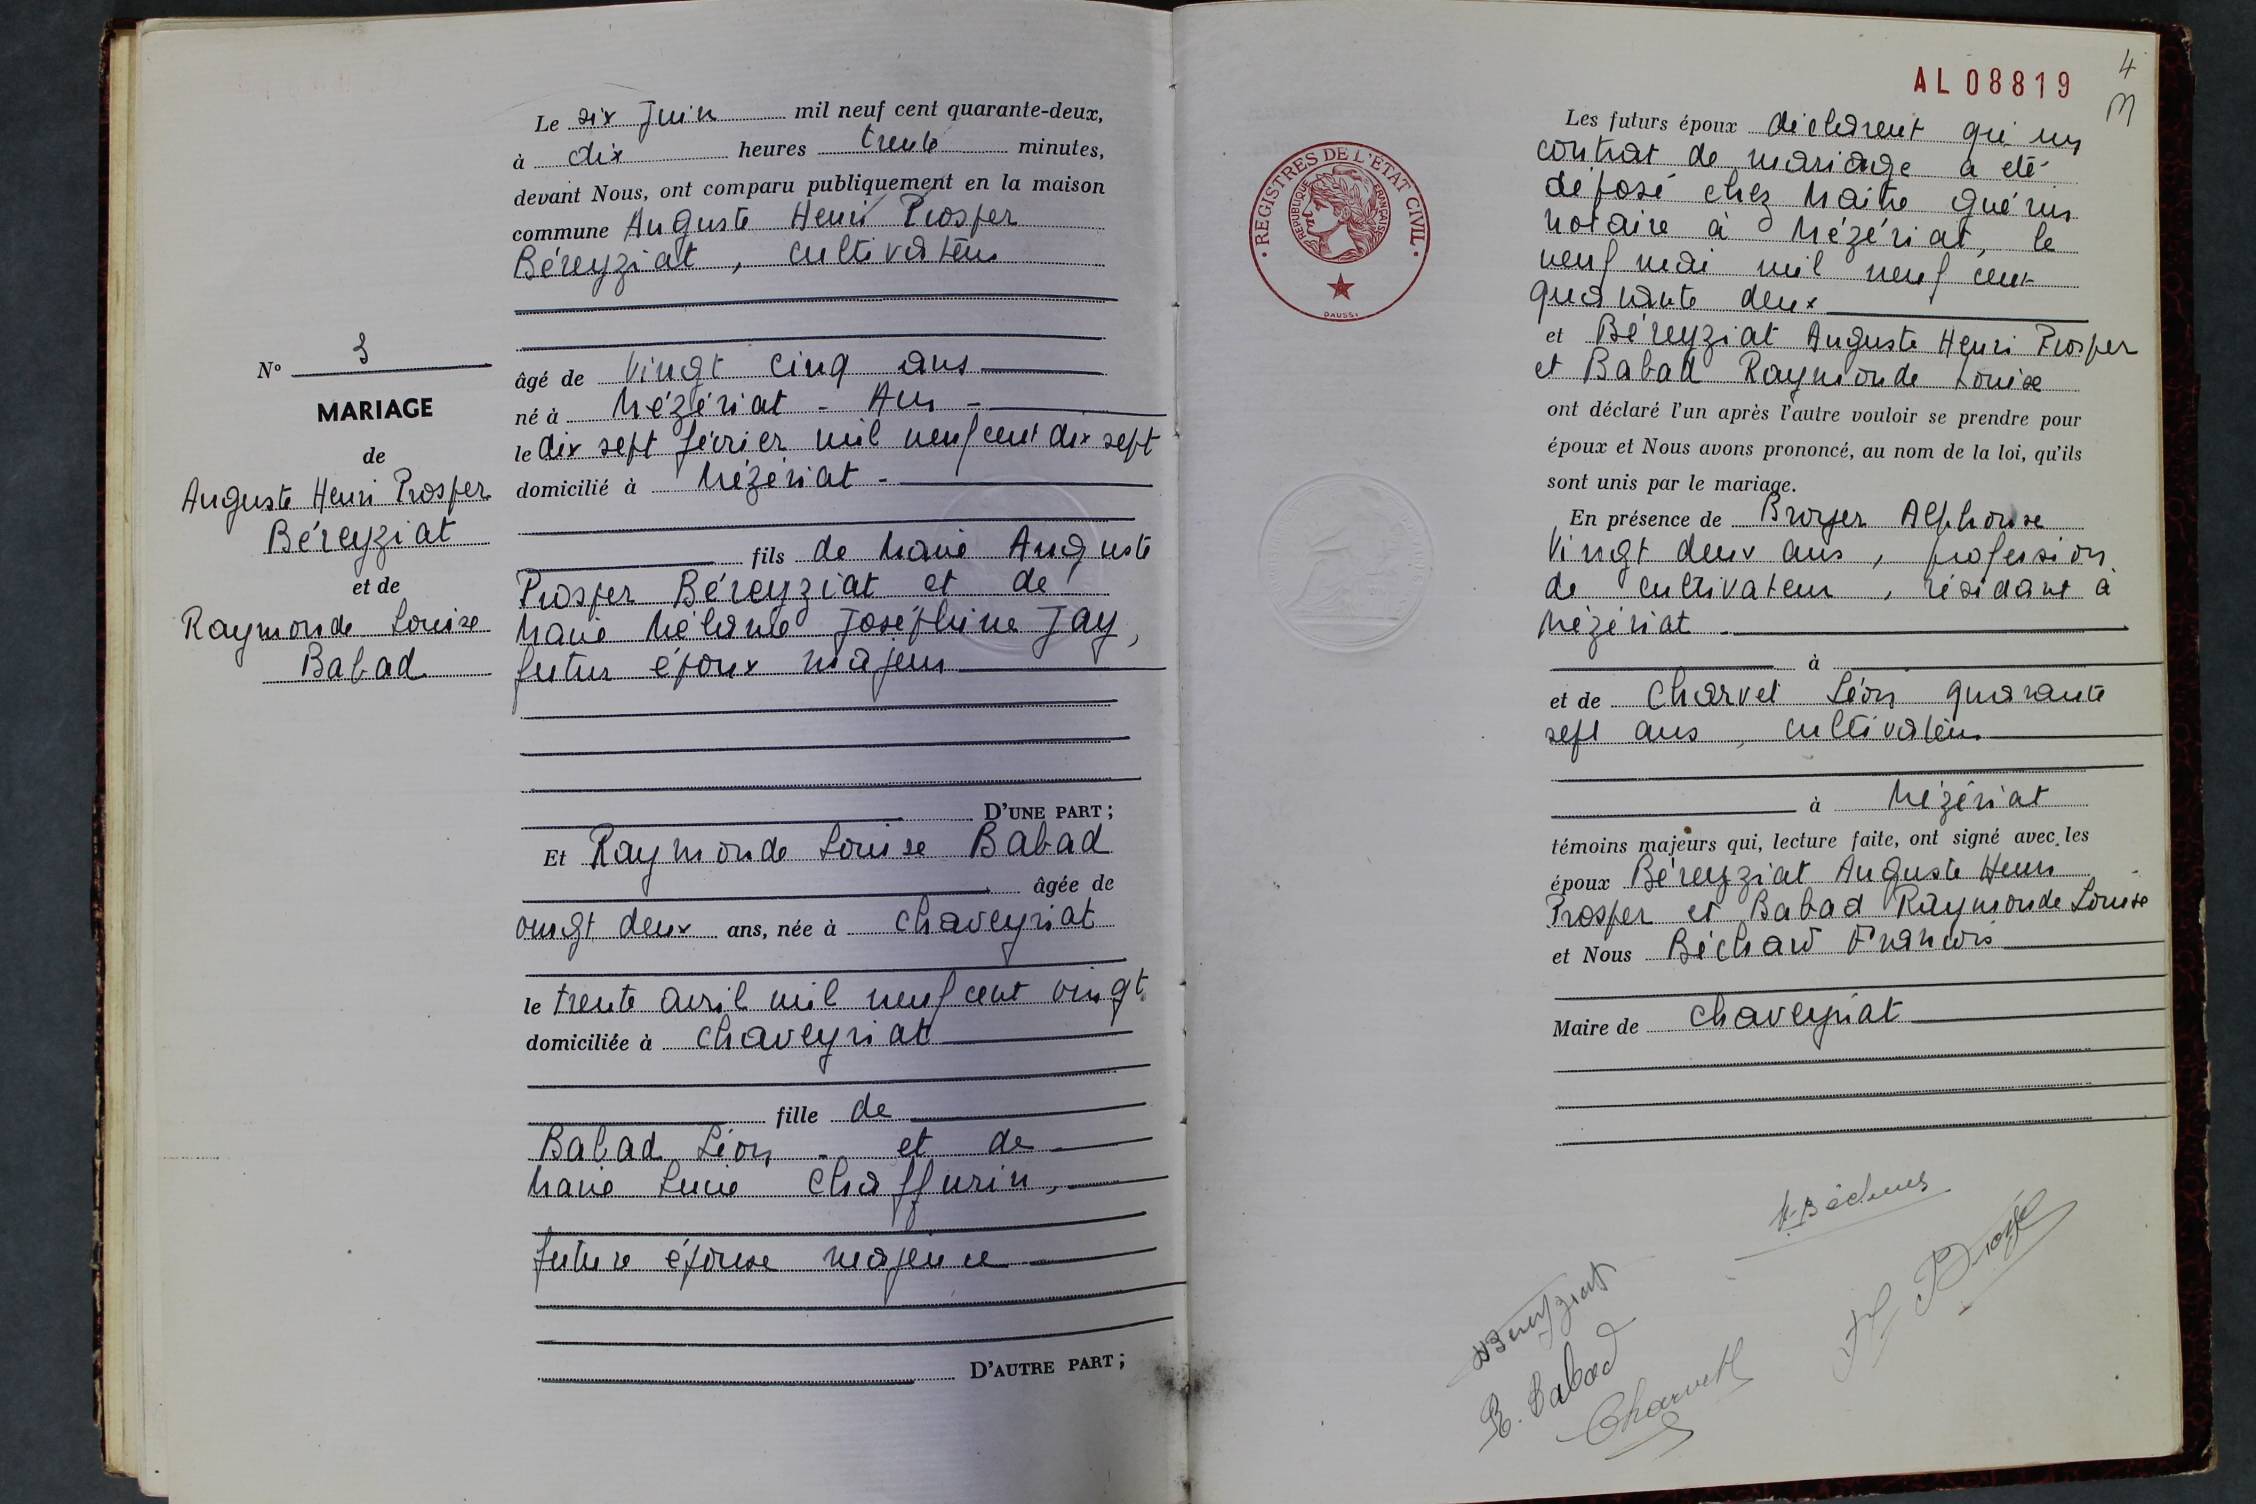 Le six Juin mil neuf cent quarante-deux,
à dix heures trente minutes,
devant Nous, ont comparu publiquement en la maison
commune Auguste Henri Prosper
Béreyziat, cultivateur
âgé de vingt cinq ans
né à Mézériat - Ain -
le dix sept février mil neuf cent dix sept
domicilié à Mézériat -
fils de Marie Auguste
Prosper Béreyziat et de
Marie Mélanie Joséphine Jay,
futur époux majeur
D'UNE PART ;
Et Raymonde Louise Babad
âgée de
vingt deux ans, née à Chaveyriat
le trente avril mil neuf cent vingt
domiciliée à Chaveyriat
fille de
Babad Léon - et de
Marie Lucie Chaffurin,
future épouse majeure
D'AUTRE PART ;
N° 3
MARIAGE
de
Auguste Henri Prosper
Béreyziat
et de
Raymonde Louise
Babad
AL08819
4
M
REGISTRES DE L'ETAT CIVIL
REPUBLIQUE FRANÇAISE
Les futurs époux déclarent qu'un
contrat de mariage a été
déposé chez Maître Guérin
notaire à Mézériat, le
neuf mai mil neuf cent
quarante deux
et Béreyziat Auguste Henri Prosper
et Babad Raymonde Louise
ont déclaré l'un après l'autre vouloir se prendre pour
époux et Nous avons prononcé, au nom de la loi, qu'ils
sont unis par le mariage.
En présence de Broyer Alphonse
vingt deux ans, profession
de cultivateur, résidant à
Mézériat -
à
et de Charvet Léon quarante
sept ans, cultivateur
à Mézériat
témoins majeurs qui, lecture faite, ont signé avec les
époux Béreyziat Auguste Henri
Prosper et Babad Raymonde Louise
et Nous Béchard François
Maire de Chaveyriat
Béreyziat
R. Babad
Charvet